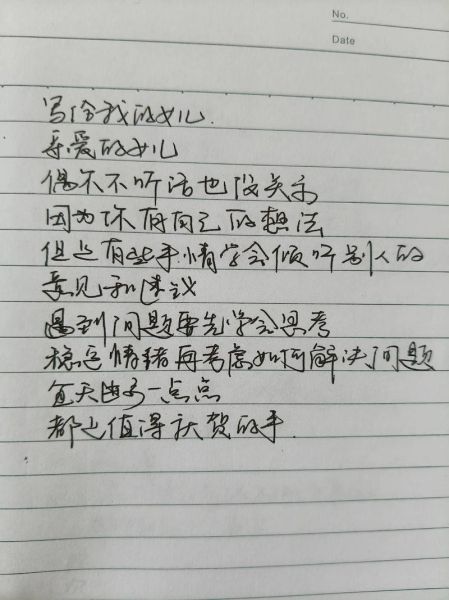 No.
Date
写给我的女儿.
亲爱的女儿
偶尔不听话也没关系
因为你有自己的想法
但是有些事情学会倾听别人的
意见和建议
遇到问题要先学会思考
稳定情绪再考虑如何解决问题
每天进步一点点
都是值得庆贺的事.